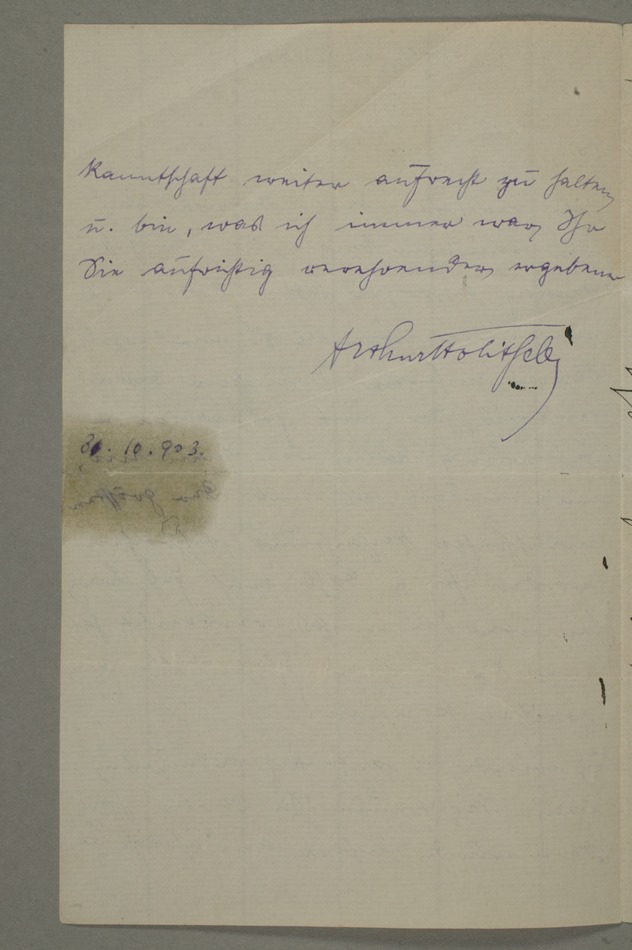 kanntschaft weiter aufrecht zu halten
u. bin, was ich immer war, Ihr
Sie aufrichtig verehrender, ergebener
Arthur Holitscher
31. 10. 903.